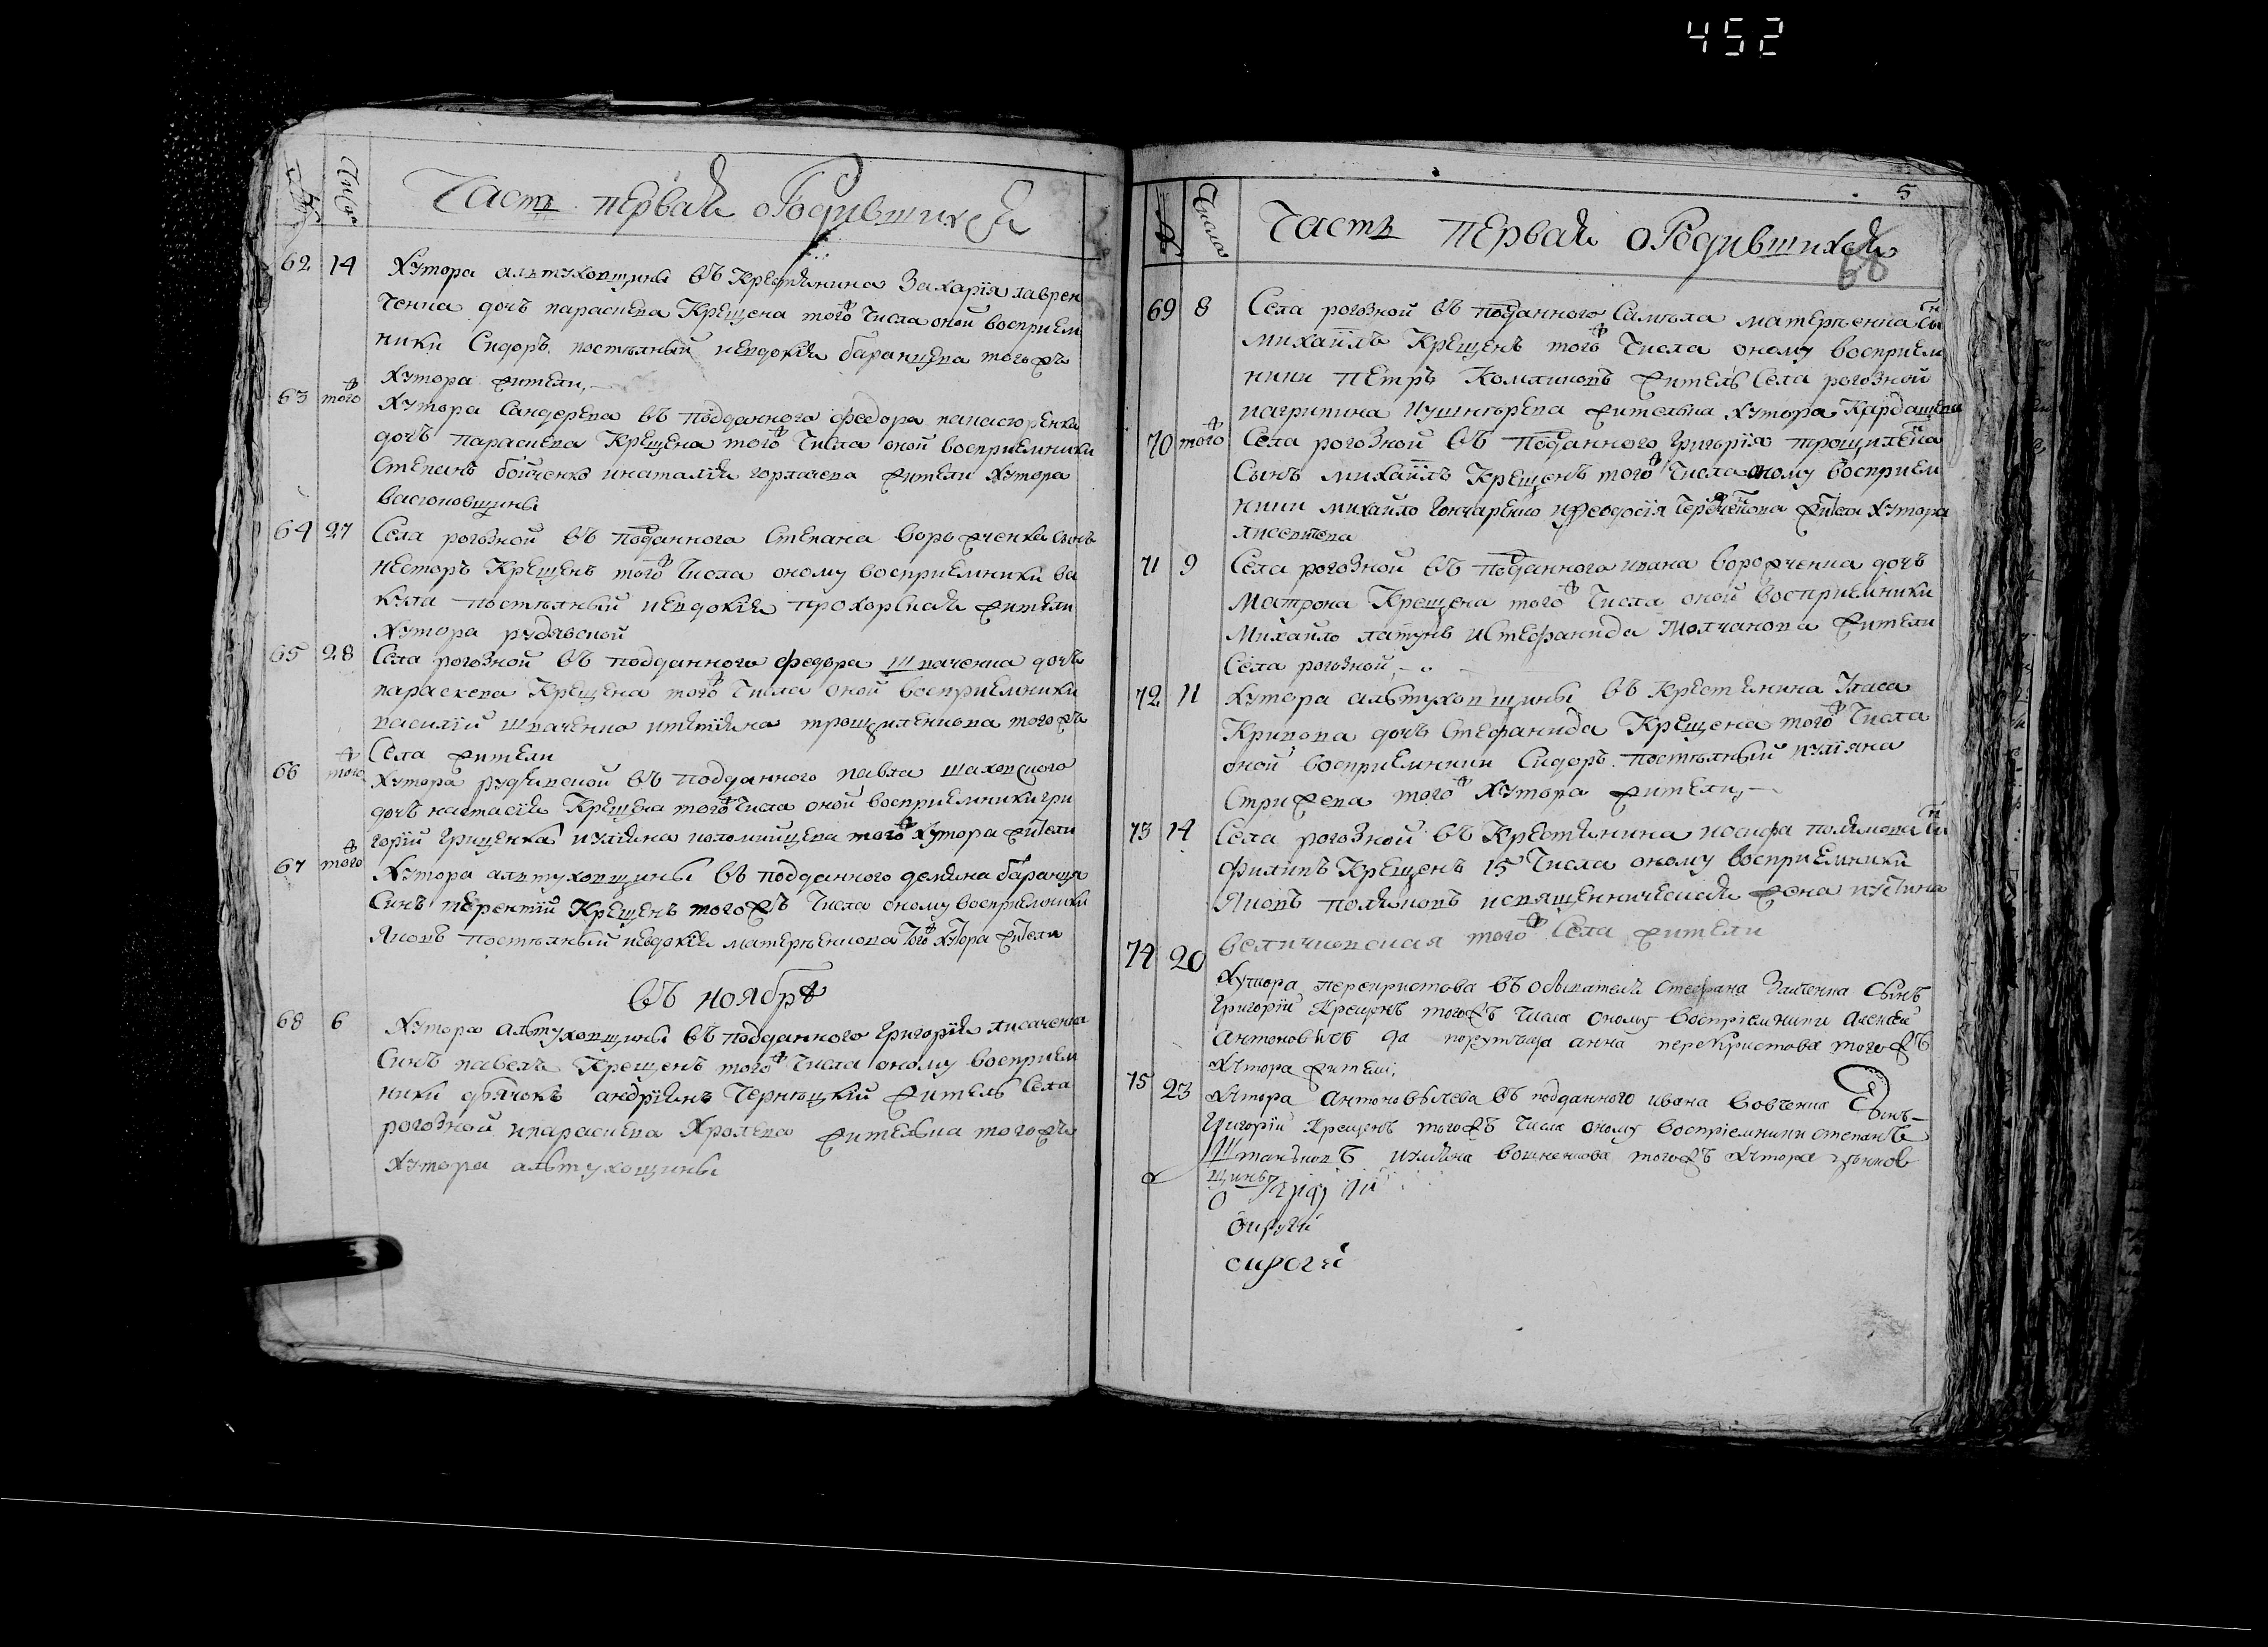 452
Числа
Часть первая о Родившихся
62 14 Хутора алтуховщины въ Крестянина Захарїя лаврен
ченка дочь параскева Крещена того ж Числа оной восприем
ники Сидоръ постолный иевдокїя баранцева тогожъ
Хутора жители
63 того ж Хутора Сандерева въ подданного федора
дочь параскева Крещена того ж Числа оной восприемники
Степанъ бойченко инаталїя горлачева жители Хутора
васюновщины
64 27 Села рогозной въ подданного Степана ворожченка сынъ
несторъ Крещенъ того ж Числа оному восприемники ва
кула постолный иевдокїя прохорская жители
Хутора рудявской
65 28 Села рогозной въ подданного федора шпаченка дочь
параскева Крещена того ж Числа оной восприемники
василїй шпаченко трощиленкова тогожъ
Села жители
66 того ж Хутора рудявской въ подданного павла шаховского
дочь настасїя Крещена того ж Числа оной восприемники гри
горїй грищенка иулїяна коломийцева того ж Хутора жители
67 того ж Хутора алтуховщины въ подданного демяна баранца
Синъ терентїй Крещенъ тогожъ Числа оному восприемники
Яковъ постолный иевдокїя матерненкова того ж Хутора жители
въ ноябрѣ
68 6 Хутора алтуховщины въ подданного григорїя лисаченка
Синъ павелъ Крещенъ того ж Числа оному восприем
ники дьячокъ андрїянъ Чернецкїй житель Села
рогозной ипараскева Хролева жителка тогожъ
Хутора алтухощины
5
Числа
Часть первая о Родившихся
68
69 8 Села рогозной въ подданного Самъла матерненка Сынъ
михаилъ Крещенъ того ж Числа оному восприем
ники петръ Комликовъ житель Села рогозной
иагрипина Кушнѣрева жителка Хутора Кардашева
70 того ж Села рогозной въ подданного григорїя трощиленка
Сынъ михаилъ Крещенъ того ж Числа оному восприем
ники михайло гончаренко ифеодосїя жители Хутора
лисевтева
71 9 Села рогозной въ подданного ивана ворожченка дочь
матрона Крещена того ж Числа оной восприемники
михайло латунъ истефанида молчанова жители
Села рогозной
72 11 Хутора альтуховщины въ Крестянина Уласа
Кривова дочь Стефанида Крещена того ж Числа
оной восприемники Сидоръ постолный иулїяна
Стрижева того ж Хутора жители
73 14 Села рогозной въ Крестянина иосифа полякова Сынъ
филипъ Крещенъ 15 Числа оному восприемники
Яковъ поляковъ исвященническая жена иустина
величковская того ж Села жители
74 20 Хутора перекристова въ обивателя Стефана Заиченка Сынъ
григорїй Крещенъ тогожъ Числа оному воспрїемники алексей
антоновъ да анна перекристова тогожъ
Хутора жители
75 23 Хутора антоновылева въ подданного ивана вовченка Сынъ
григорїй Крещенъ тогожъ Числа оному воспрїемники степанъ
иулїяна вошненкова тогожъ Хутора
щины